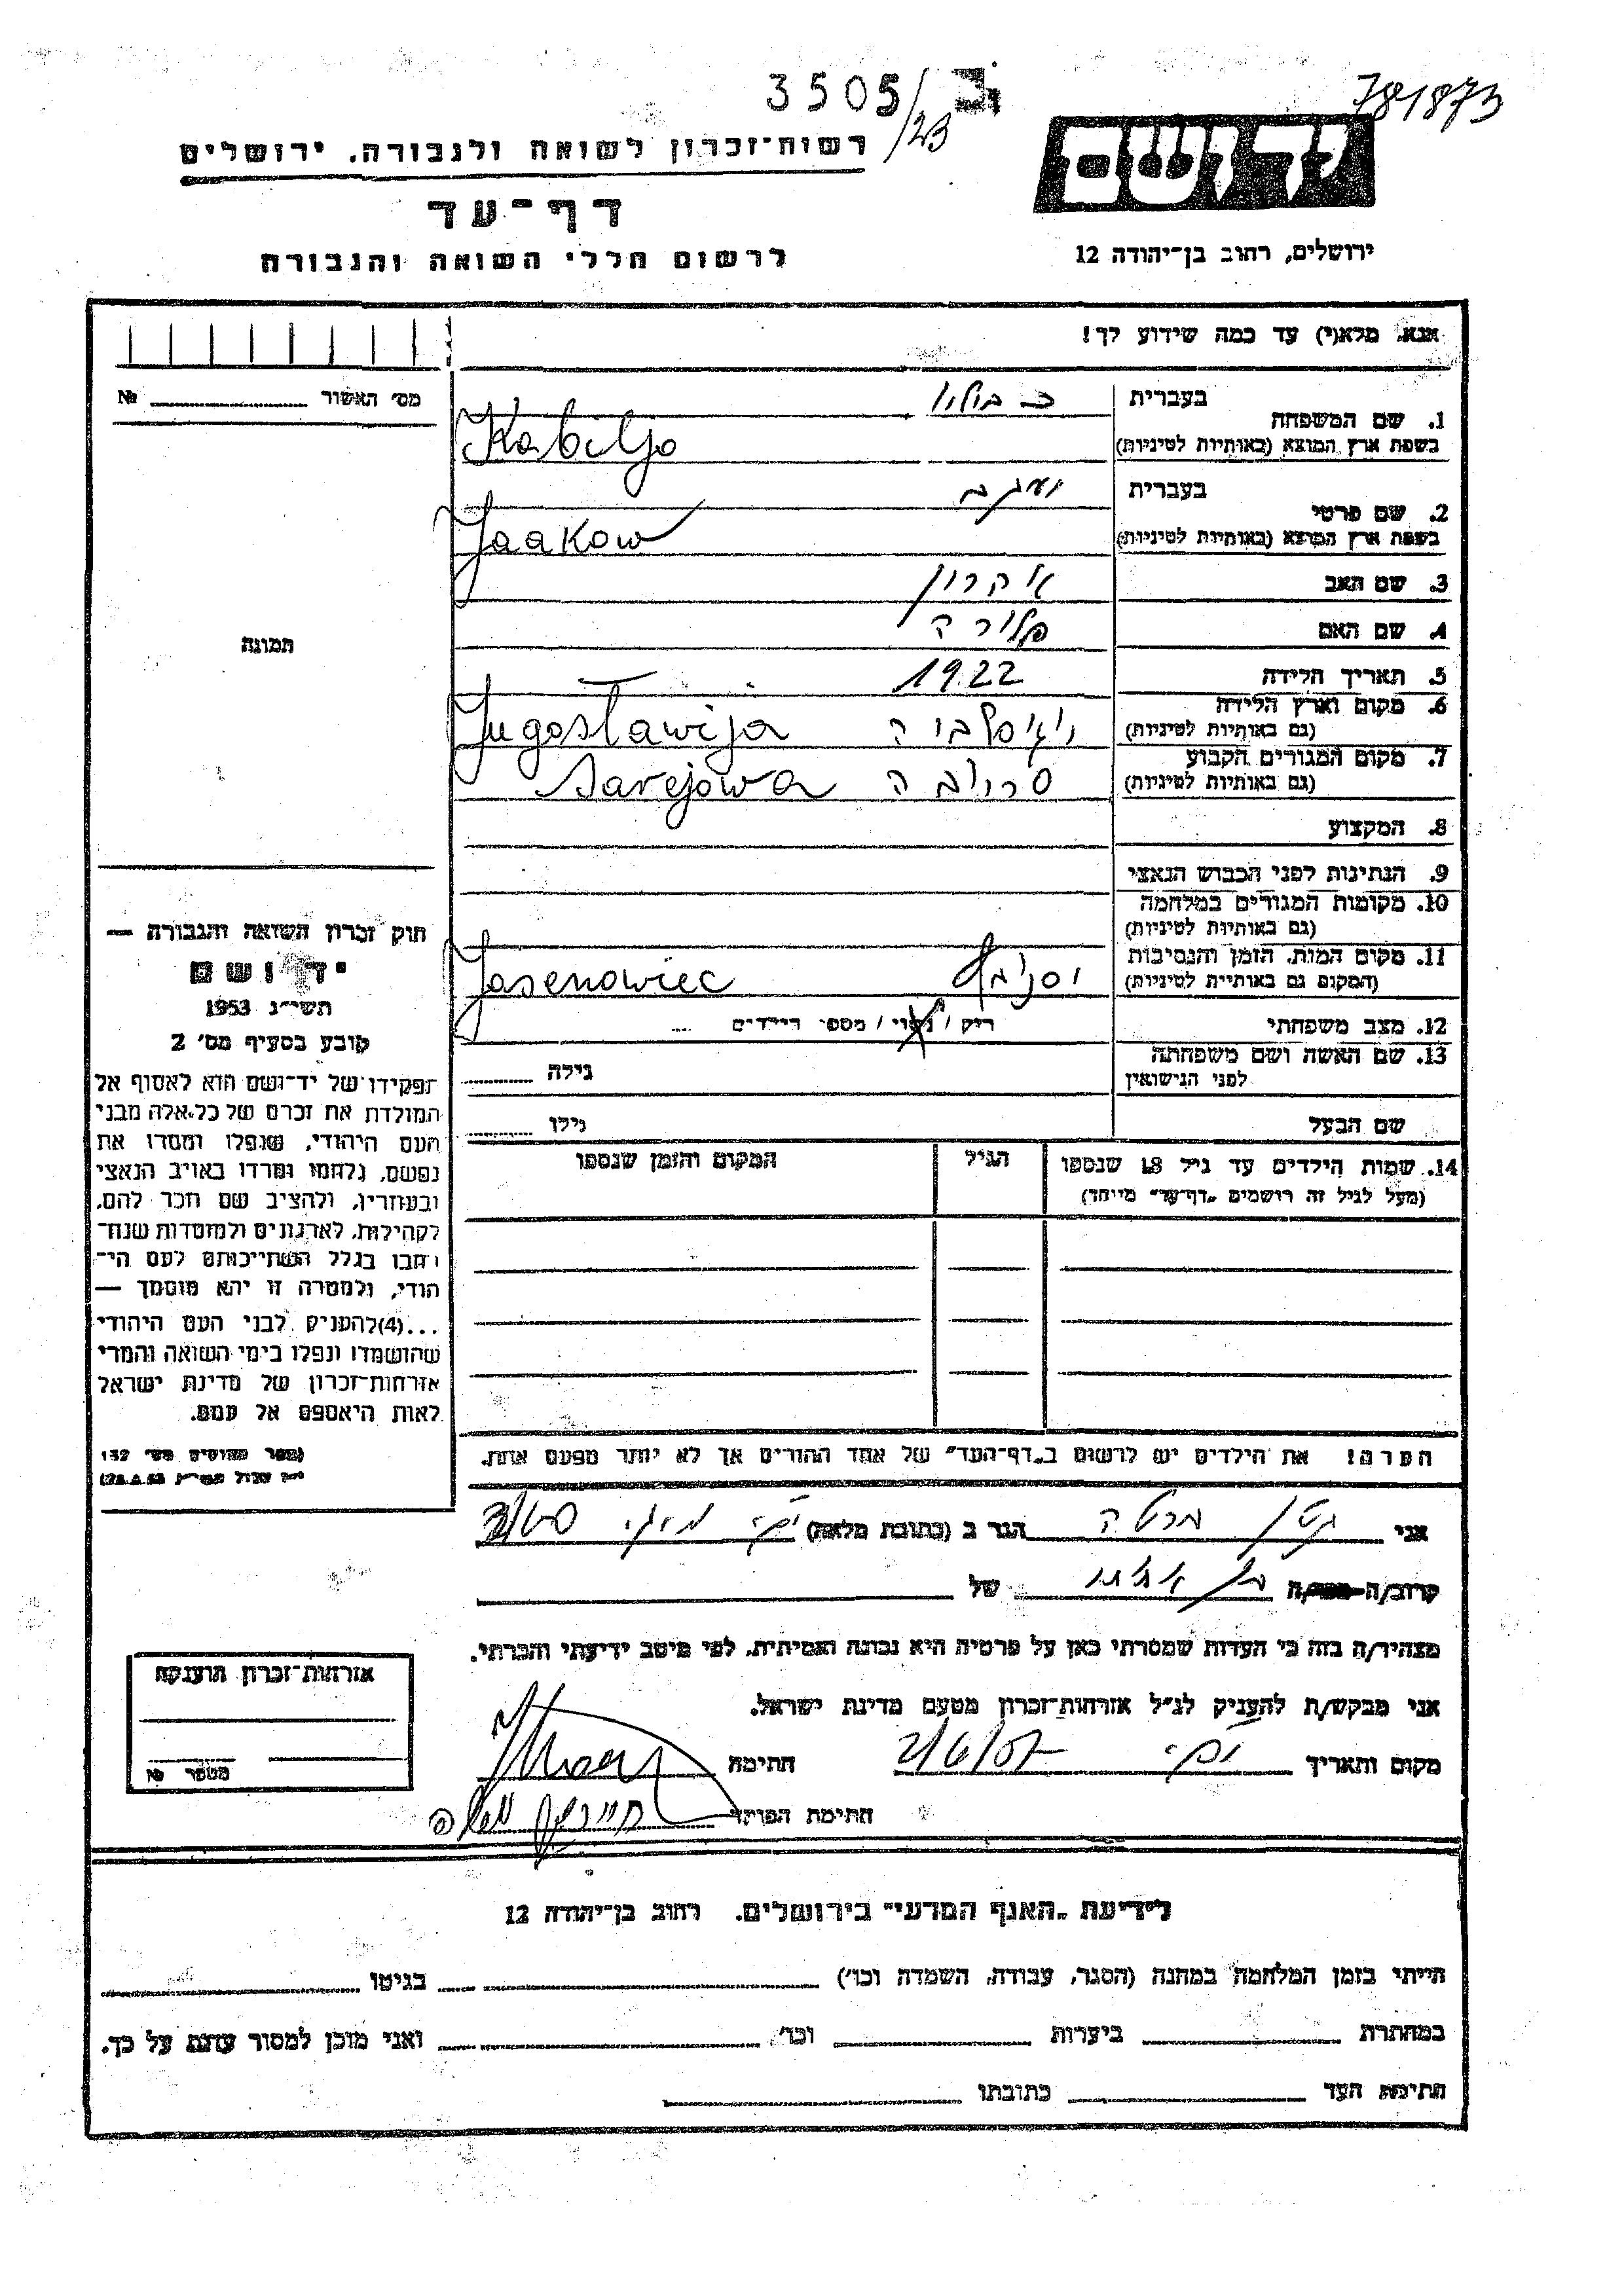 3505/23
781873
רשות-זכרון לשואה ולגבורה. ירושלים
דף-עד
לרשום חללי השואה והגבורה
יד ושם
ירושלים, רחוב בן-יהודה 12
אנא. מלא(י) עד כמה שידוע לך!
מס׳ האשור № 
1. שם המשפחה בעברית
בשפת ארץ המוצא (באותיות לטיניות) Kabiljo
2. שם פרטי בעברית יעקב
בשפת ארץ המוצא (באותיות לטיניות) Jaakow
3. שם האב אהרון
4. שם האם פלורה
5. תאריך הלידה 1922
6. מקום וארץ הלידה
(גם באותיות לטיניות) Jugoslawija
7. מקום המגורים הקבוע
(גם באותיות לטיניות) Sarejowa
8. המקצוע
9. הנתינות לפני הכבוש הנאצי
10. מקומות המגורים במלחמה
(גם באותיות לטיניות)
11. מקום המות, הזמן והנסיבות
(המקום גם באותיות לטיניות) Jasenowiec
12. מצב משפחתי רוק / נשוי / מספר הילדים
13. שם האשה ושם משפחתה
לפני הנישואין גילה
שם הבעל גילו
14. שמות הילדים עד גיל 18 שנספו הגיל המקום והזמן שנספו
(מעל לגיל זה רושמים „דף-עד״ מיוחד)
הערה! את הילדים יש לרשום ב„דף-העד״ של אחד ההורים אך לא יותר מפעם אחת.
תמונה
חוק זכרון השואה והגבורה —
יד ושם
תשי״ג 1953
קובע בסעיף מס׳ 2
תפקידו של יד-ושם הוא לאסוף אל
המולדת את זכרם של כל אלה מבני
העם היהודי, שנפלו ומסרו את
נפשם, נלחמו ומרדו באויב הנאצי
ובעוזריו, ולהציב שם וזכר להם,
לקהילות, לארגונים ולמוסדות שנח-
רבו בגלל השתייכותם לעם הי-
הודי, ולמטרה זו יהא מוסמך —
...(4) להעניק לבני העם היהודי
שהושמדו ונפלו בימי השואה והמרי
אזרחות-זכרון של מדינת ישראל
לאות היאספם אל עמם.
אני מרטה הגר ב (כתובת מלאה)
קרוב/ה של
מצהיר/ה בזה כי העדות שמסרתי כאן על פרטיה היא נכונה ואמיתית, לפי מיטב ידיעתי והכרתי.
אני מבקש/ת להעניק לנ״ל אזרחות-זכרון מטעם מדינת ישראל.
מקום ותאריך 2/6/57 חתימה
חתימת הפוקד
אזרחות-זכרון הוענקה
מספר №
לידיעת „האגף המדעי״ בירושלים. רחוב בן-יהודה 12
הייתי בזמן המלחמה במחנה (הסגר, עבודה, השמדה וכו׳) בגיטו
במחתרת ביערות וכו׳ ואני מוכן למסור עדות על כך.
חתימת העד כתובתו